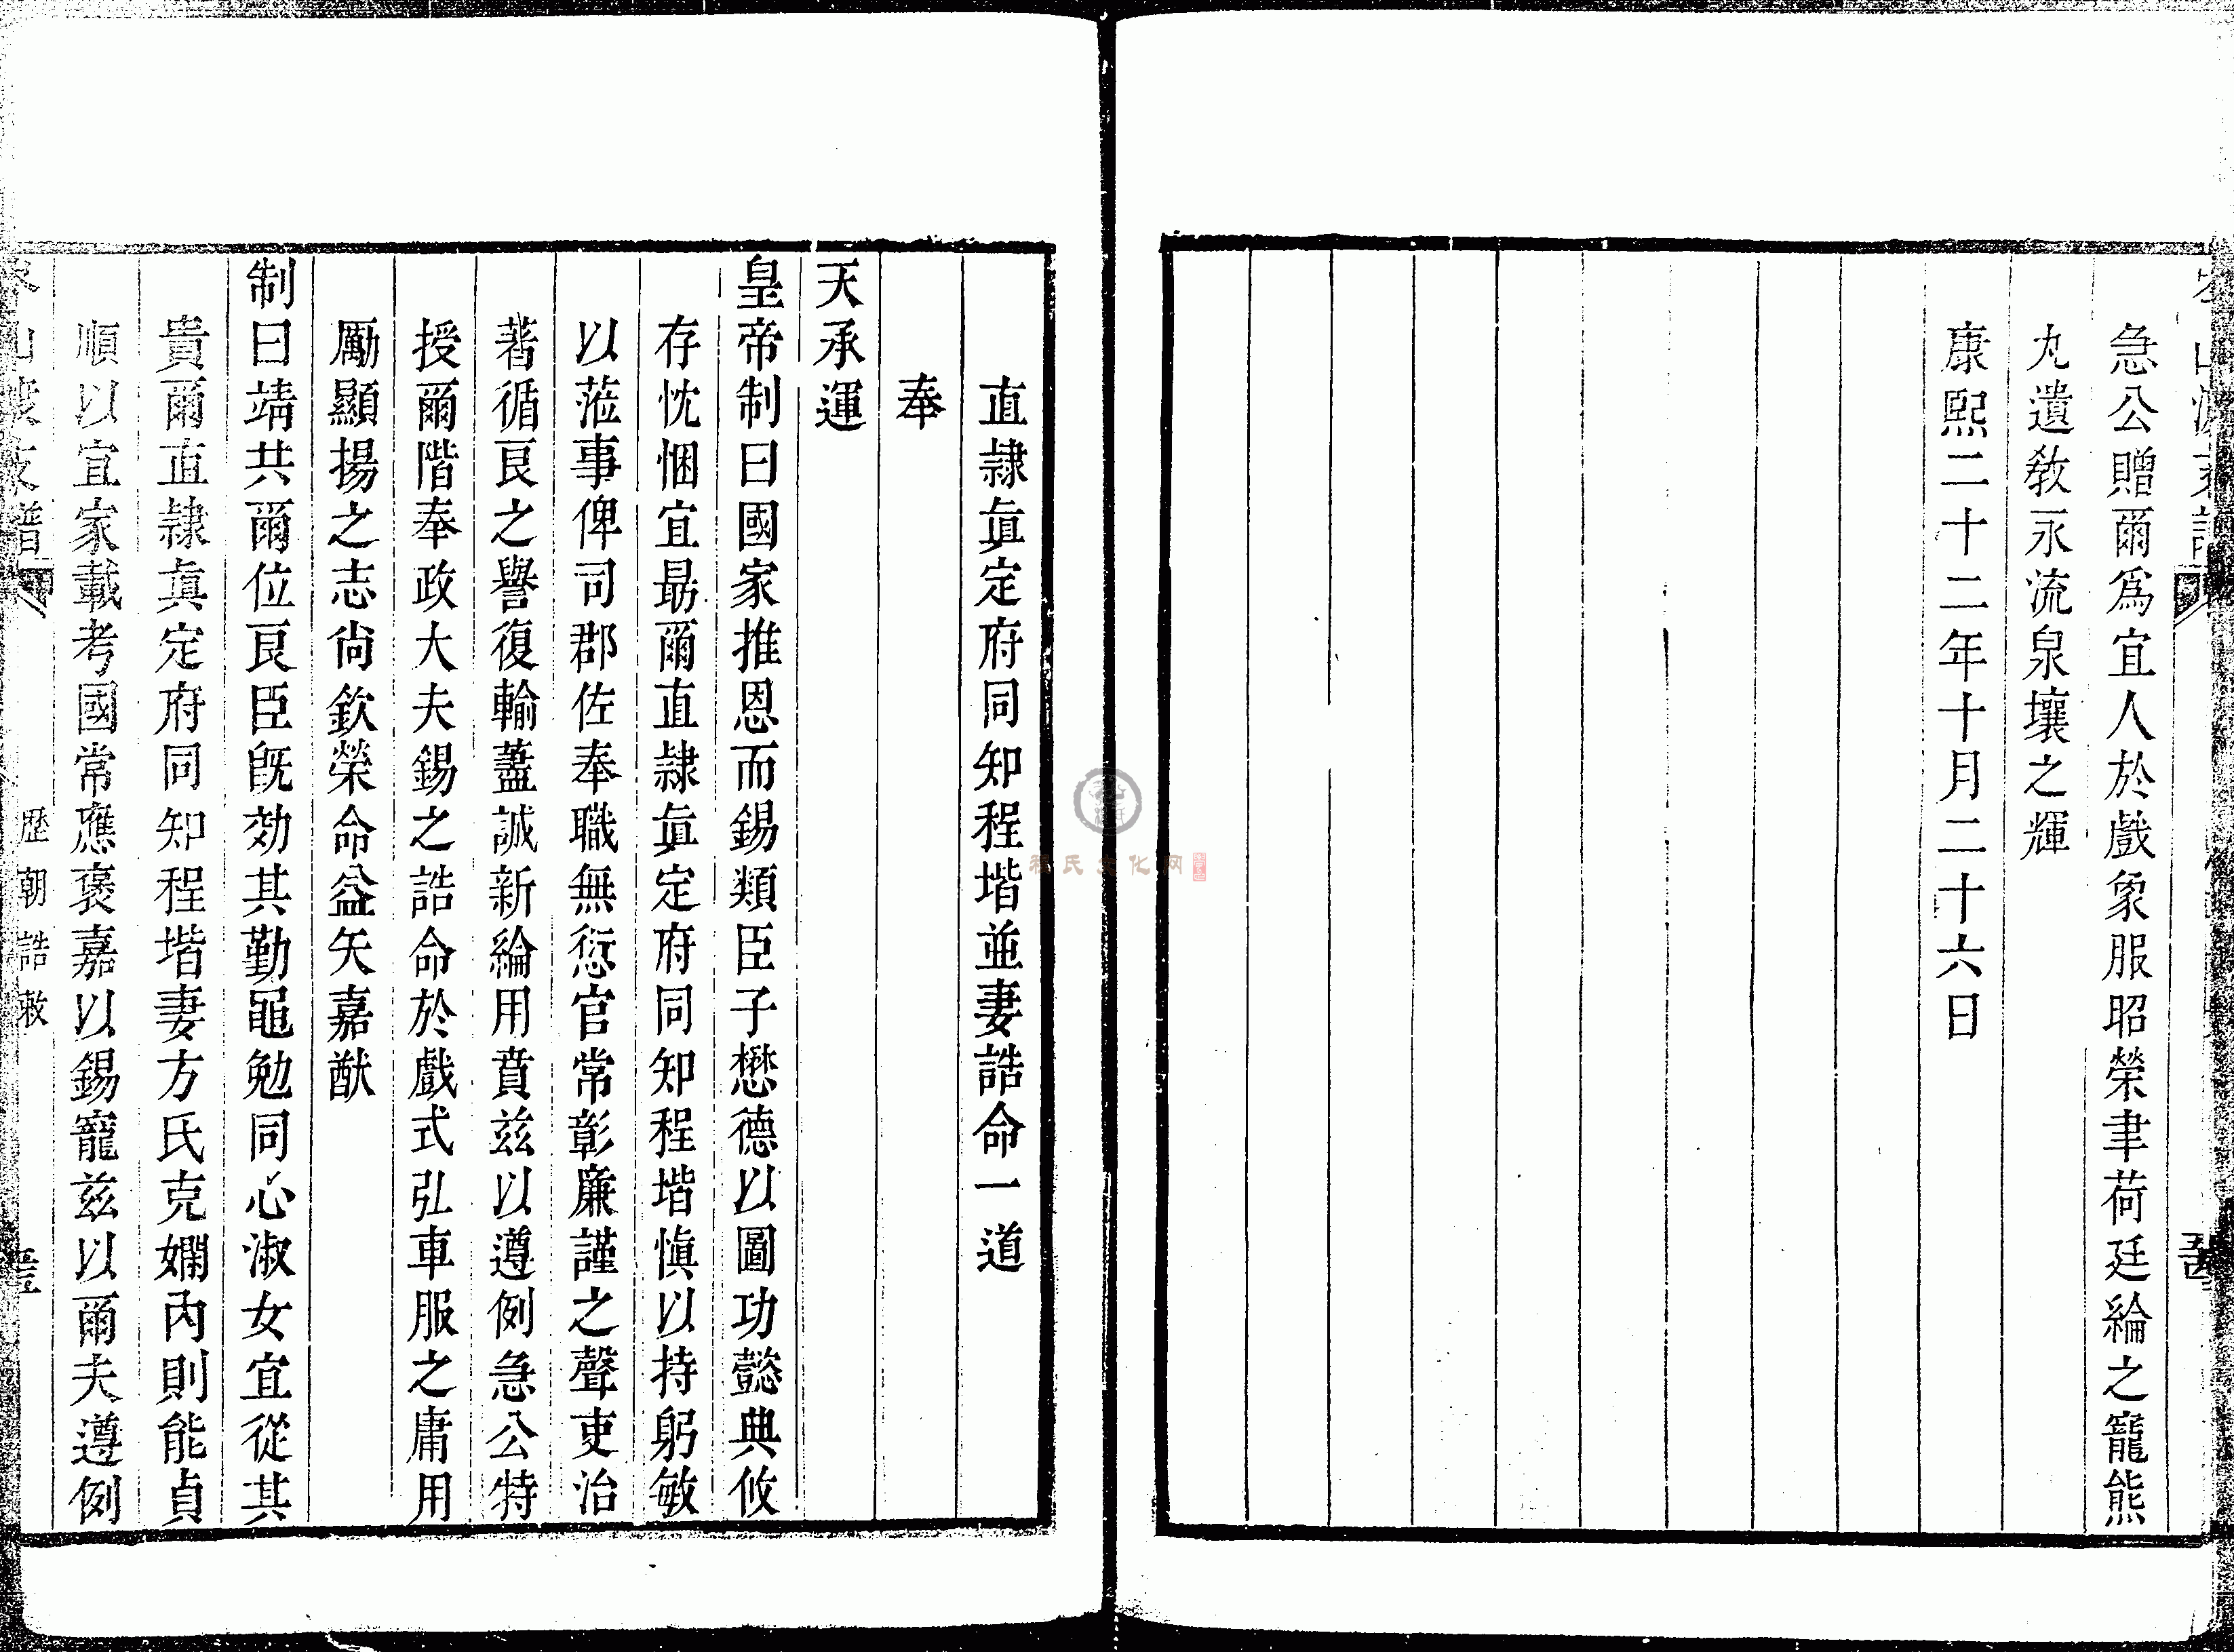 急公贈爾爲宜人於戲象服昭榮聿荷廷綸之寵熊
九遺敎永流泉壤之輝
康熙二十二年十月二十六日
直隸眞定府同知程堦並妻誥命一道
奉
天承運
皇帝制曰國家推恩而錫類臣子懋德以圖功懿典攸
存忱悃宜勗爾直隸眞定府同知程堦愼以持躬敏
以蒞事俾司郡佐奉職無愆官常彰廉謹之聲吏治
著循良之譽復輸藎誠新綸用賁兹以遵例急公特
授爾階奉政大夫錫之誥命於戲式弘車服之庸用
勵顯揚之志尙欽榮命益矢嘉猷
制曰靖共爾位良臣旣効其勤黽勉同心淑女宜從其
貴爾直隸眞定府同知程堦妻方氏克嫻內則能貞
順以宜家載考國常應褒嘉以錫寵兹以爾夫遵例
歷朝誥敕
程氏文化网